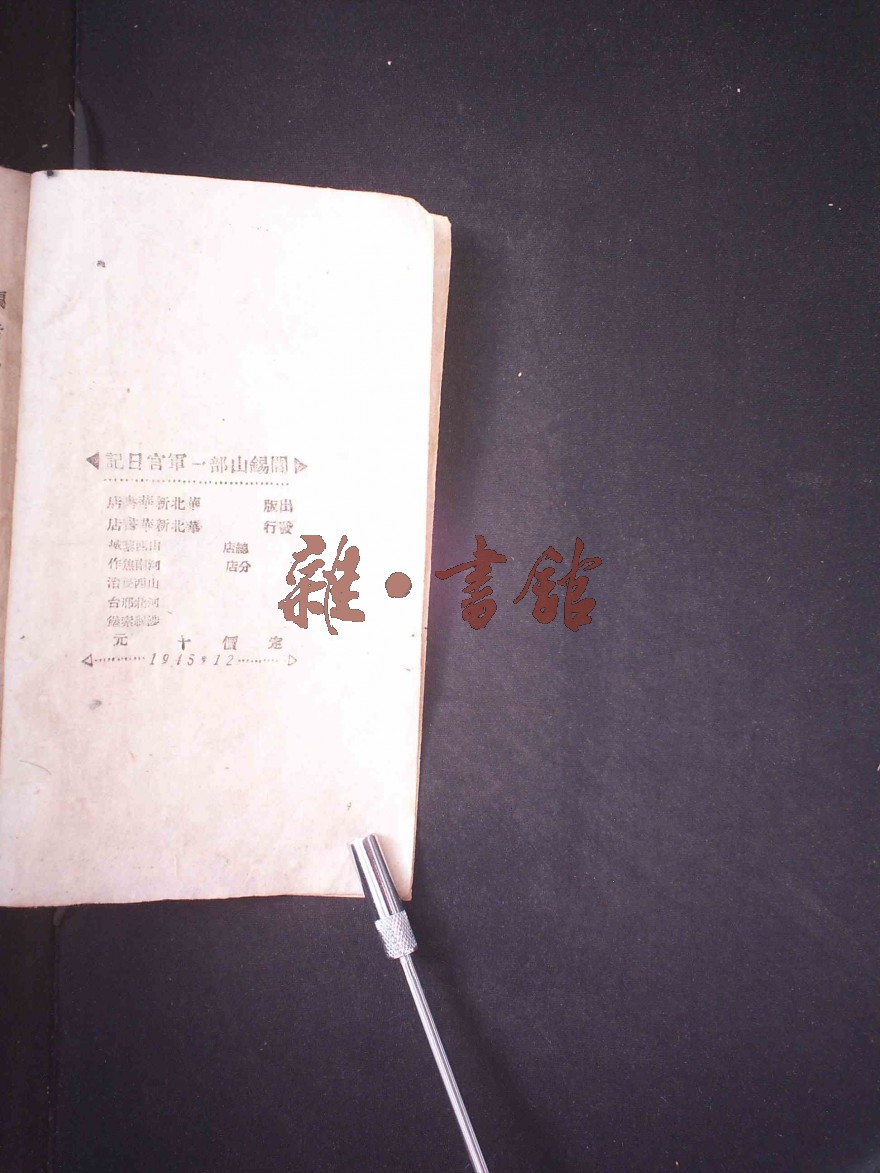 閻錫山部一軍官日記
出版 華北新華書店
發行 華北新華書店
總店 山西黎城
分店 河南焦作
山西長治
河北邢台
涉縣
定價十元
1945,12
雜·書館